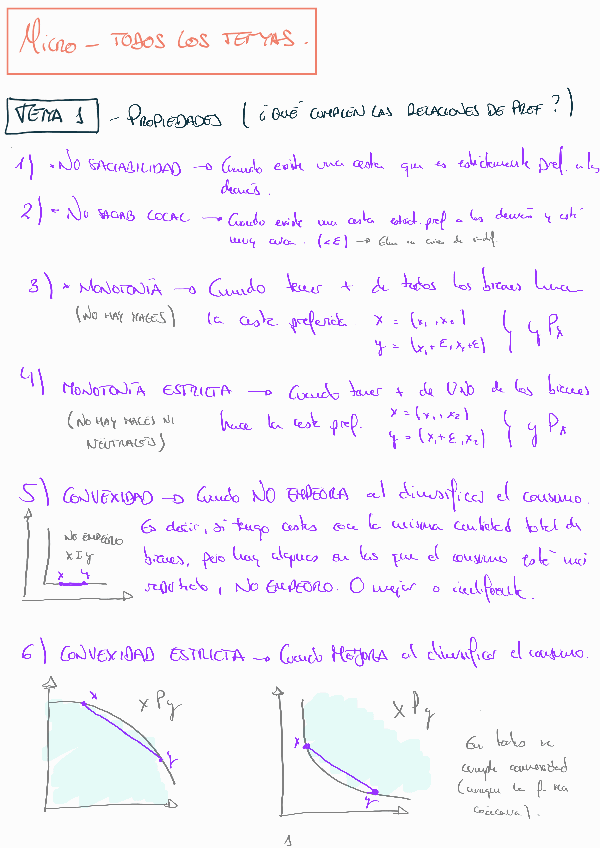 MICRO - TODOS LOS TEMAS.
TEMA 1 - PROPIEDADES (¿QUÉ CUMPLEN LAS RELACIONES DE PREF?)
1) • NO SACIABILIDAD → Cuando existe una cesta que es estrictamente pref. a las
demás.
2) • NO SACIAB LOCAL → Cuando existe una cesta estrict. pref a las demás y está
muy cerca. (<E) →
3) • MONOTONÍA → Cuando tener + de todos los bienes hace
(NO HAY MALES) la cesta preferida x = (x₁, x₂) } y P x
y = (x₁+E, x₂+E)
4) MONOTONÍA ESTRICTA → Cuando tener + de UNO de los bienes
(NO HAY MALES NI hace la cesta pref. x = (x₁, x₂) } y P x
NEUTRALES) y = (x₁+E, x₂)
5) CONVEXIDAD → Cuando NO EMPEORA al diversificar el consumo.
NO EMPEORO
x I y
x y
Es decir, si tengo cestas con la misma cantidad total de
bienes, pero hay algunas en las que el consumo está más
repartido, NO EMPEORO. O mejor o indiferente.
6) CONVEXIDAD ESTRICTA → Cuando MEJORA al diversificar el consumo.
x
x P y
y
x
x P y
y
En todas se
cumple convexidad
(aunque la f. sea
cóncava).
1